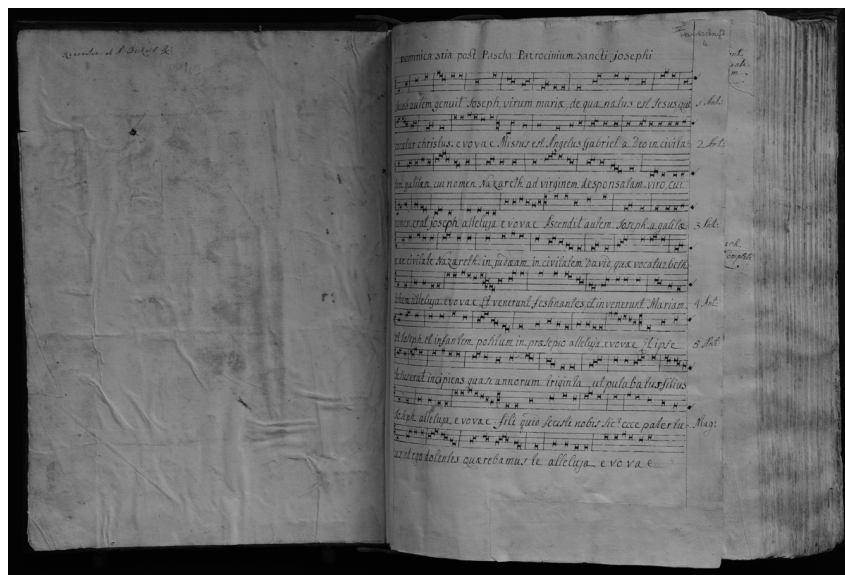 Dominica 3tia post Pascha Patrocinium Sancti Josephi
autem genuit Joseph virum mariæ de qua natus est Jesus qui
1 Ant:
vocatur christus, e vo v a e Missus est Angelus Gabriel a Deo in civita
2 Ant:
galilæa, cui nomen Nazareth ad virginem desponsatam viro, cui
nomen erat joseph alleluja e vo v a e Ascendit autem Joseph a galilæ
3 Ant:
de civitate Nazareth in judæam in civitatem David, quæ vocatur beth
alleluja, e vo v a e Et venerunt festinantes et invenerunt Mariam
4 Ant
et Joseph et infantem positum in præsepio alleluja e vo v a e Et ipse
5 Ant
Jesus erat incipiens quasi annorum triginta ut putabatur filius
Joseph alleluja e vo v a e Fili quid fecisti nobis sic? ecce pater tu
Mag:
us et ego dolentes quærebamus te alleluja e vo v a e